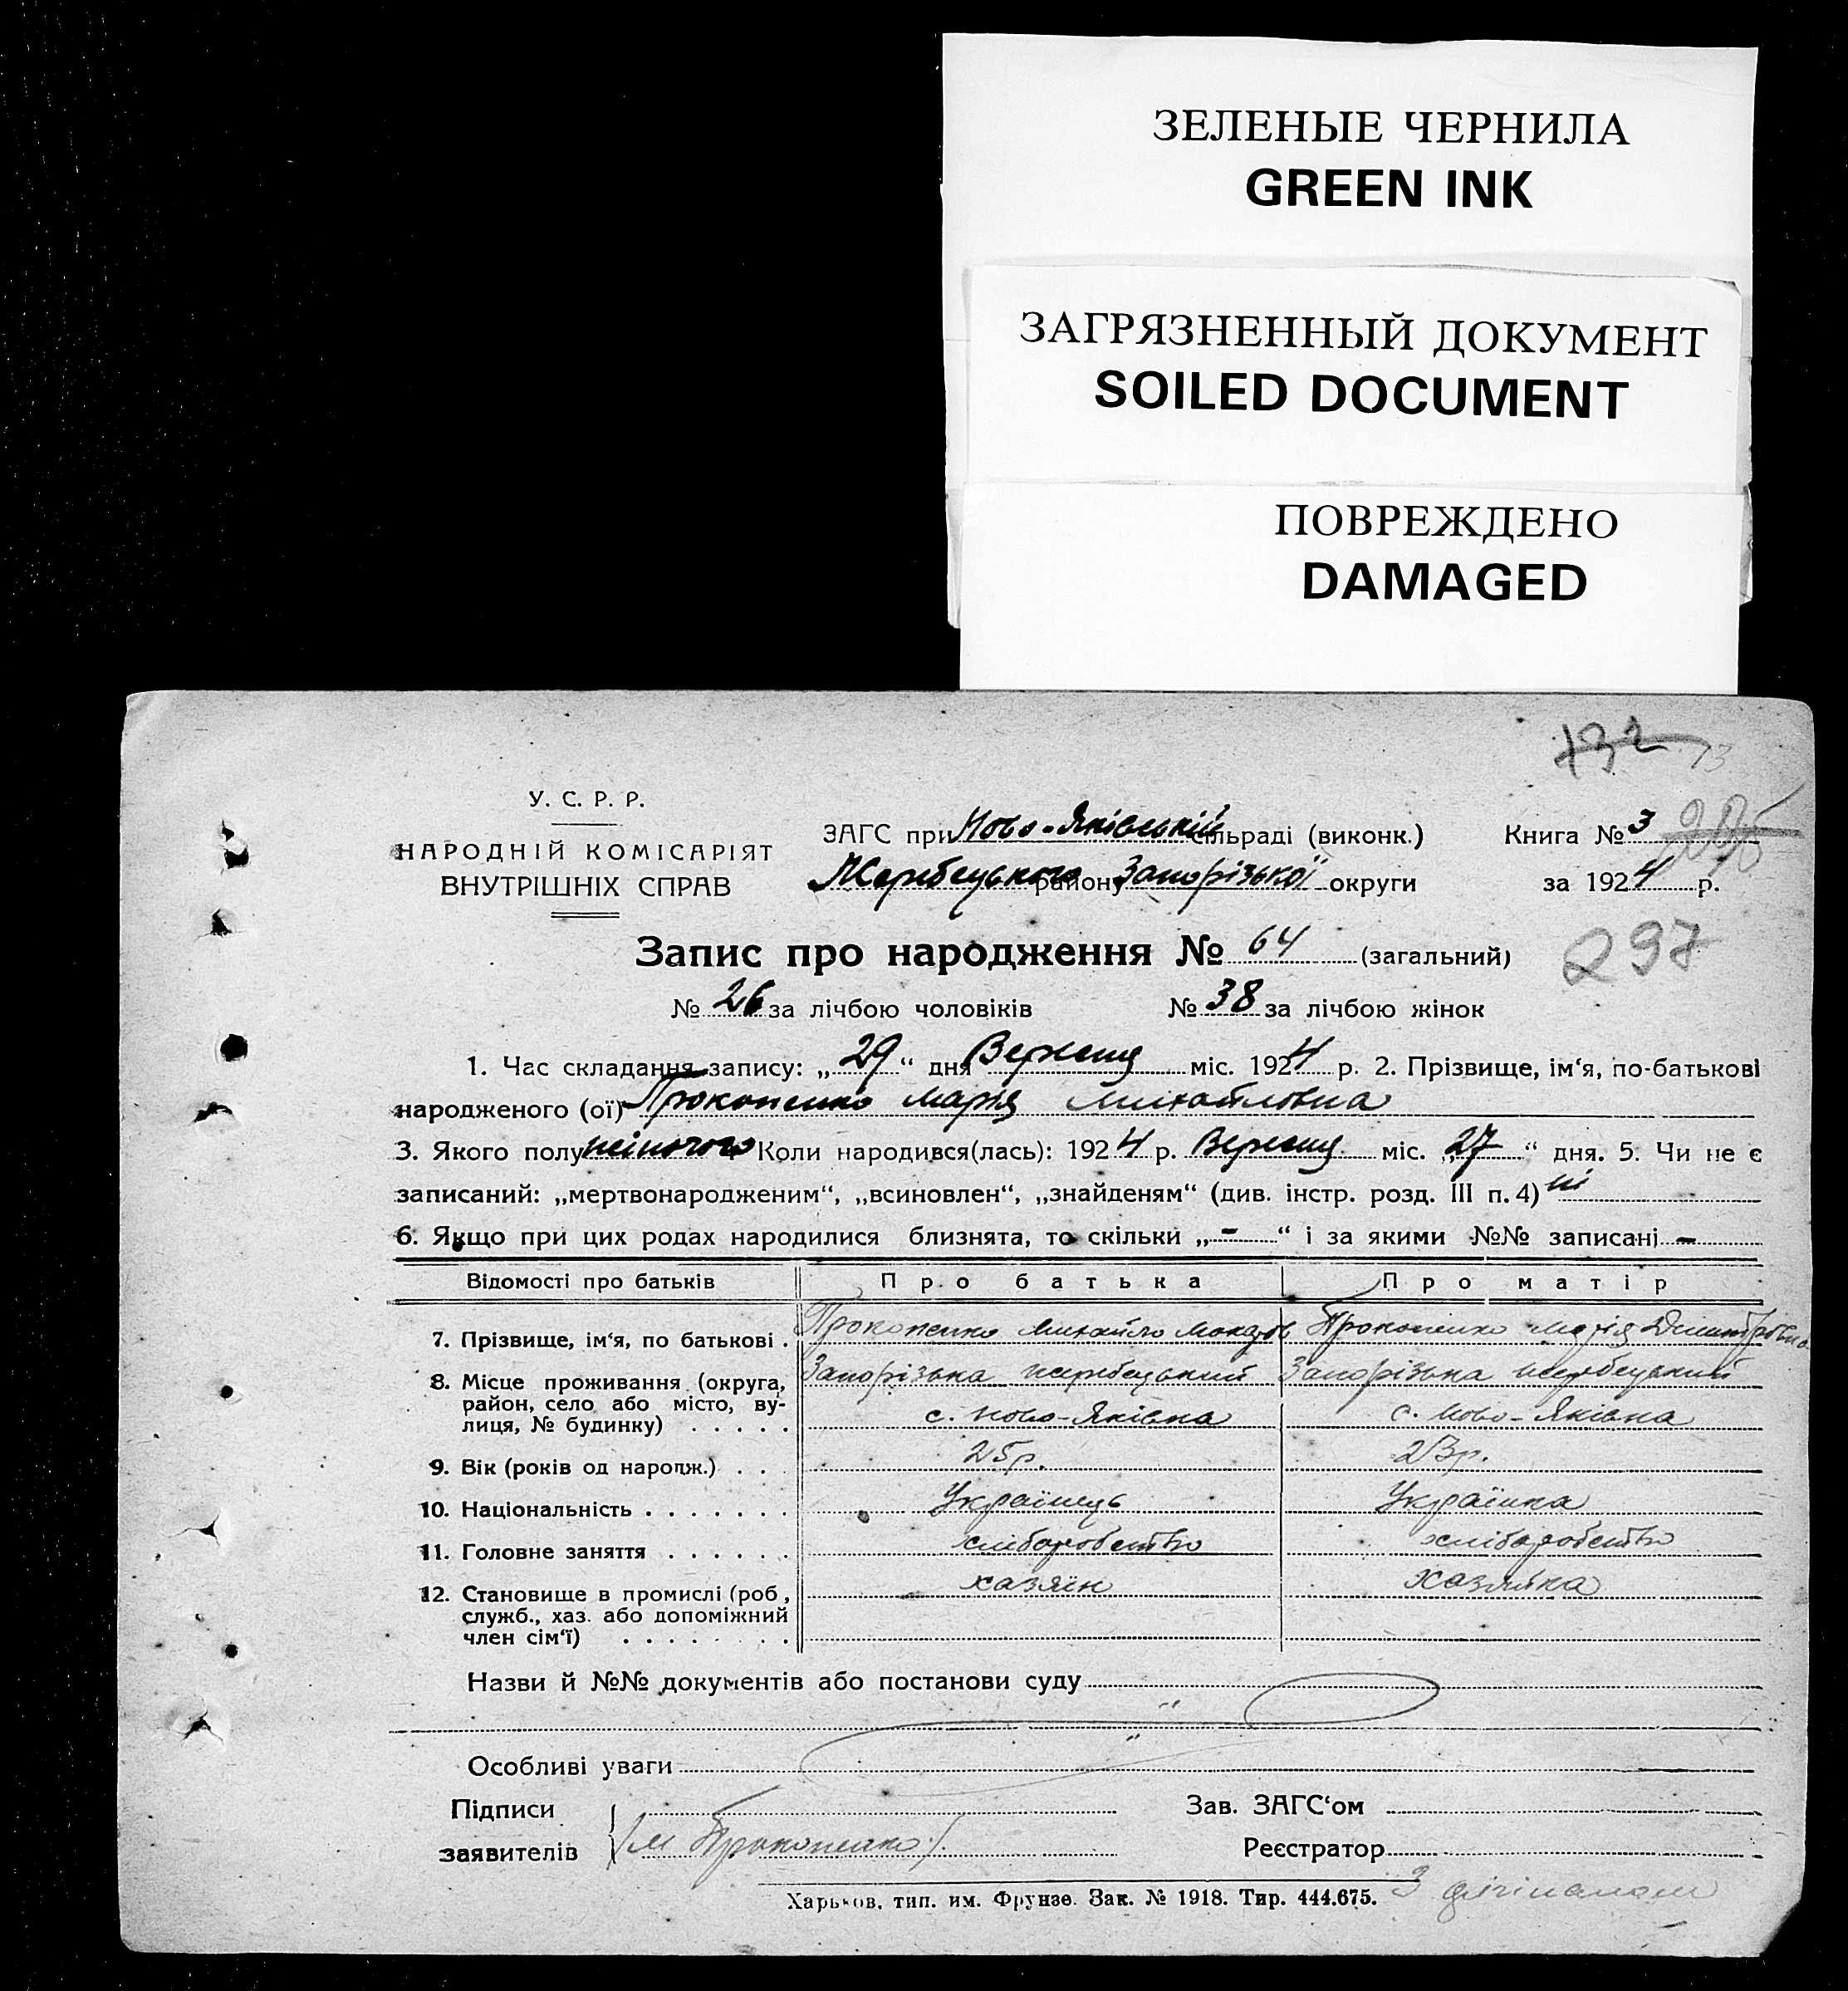 ЗЕЛЕНЫЕ ЧЕРНИЛА
GREEN INK
ЗАГРЯЗНЕННЫЙ ДОКУМЕНТ
SOILED DOCUMENT
ПОВРЕЖДЕНО
DAMAGED
132 73
У. С. Р. Р.
НАРОДНІЙ КОМІСАРІЯТ
ВНУТРІШНІХ СПРАВ
ЗАГС при Ново-Яківській сільраді (виконк.) Книга № 3
Жеребецького району Запорізької округи за 1924 р.
Запис про народження № 64 (загальний) 297
№ 26 за лічбою чоловіків № 38 за лічбою жінок
1. Час складання запису: „29“ дня Вересня міс. 1924 р. 2. Прізвище, ім‘я, по-батькові
народженого (ої) Прокопенко Марія Михайловна
3. Якого полу жіночого Коли народився(лась): 1924 р. Вересня міс. „27“ дня. 5. Чи не є
записаний: „мертвонародженим“, „всиновлен“, „знайденям“ (див. інстр. розд. III п. 4) ні
6. Якщо при цих родах народилися близнята, то скільки „-“ і за якими №№ записані -
Відомості про батьків Про батька Про матір
7. Прізвище, ім‘я, по батькові . Прокопенко Михайло Прокопенко Марія Дмитровна
8. Місце проживання (округа, Запорізька жеребецький Запорізька жеребецький
район, село або місто, ву- с. Ново-Яківка с. Ново-Яківка
лиця, № будинку) . . . . .
9. Вік (років од народж.) . . . 25р. 23р.
10. Національність . . . . . . . Українець Українка
11. Головне заняття . . . . . . хліборобство хліборобство
12. Становище в промислі (роб, хазяїн хазяйка
служб., хаз. або допоміжний
член сім‘ї) . . . . . . . .
Назви й №№ документів або постанови суду
Особливі уваги
Підписи Зав. ЗАГС‘ом
заявителів /М Прокопенко/. Реєстратор
Харьков, тип. им. Фрунзе. Зак. № 1918. Тир. 444.675.